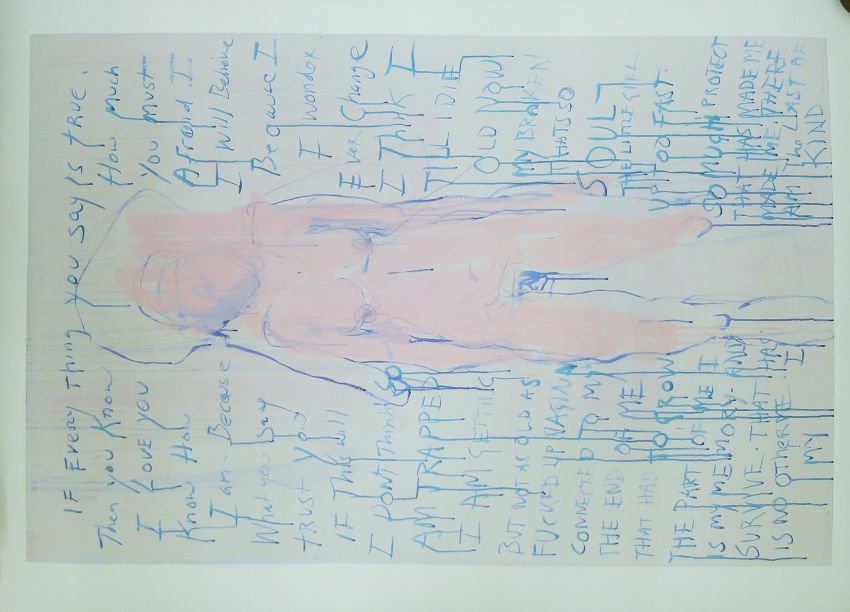 IF EVERY THING YOU SAY IS TRUE.
Then you Know How much
I Love you You must
Know How Afraid I
I am. Because I Will Believe
What you say Because I
trust you I wonder
IF This will Ever Change
I DONT THINK SO I THINK I
AM TRAPPED TILL I DIE
I AM GETTING OLD NOW
BUT NOT AS OLD AS MY BROKEN
FUCKED UP VAGINA THATS SO
CONNECTED TO MY SOUL
THE END OF ME THE LITTLE GIRL
THAT HAD TO GROW UP TOO FAST.
THE PART OF ME I SO MUCH PROTECT
IS MY MEMORY. AND THAT HAS MADE ME
SURVIVE. THAT HAS MADE ME THERE
IS NO OTHER I AM LAST OF
MY KIND